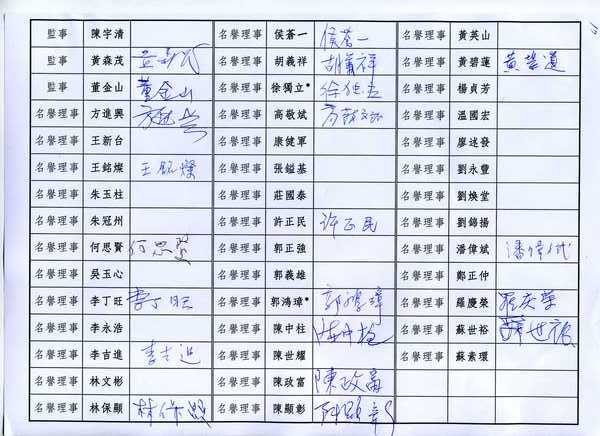 監事 陳宇清 名譽理事 侯蒼一 侯蒼一 名譽理事 黃英山
監事 黃森茂 黃森茂 名譽理事 胡義祥 胡義祥 名譽理事 黃碧蓮
監事 董金山 董金山 名譽理事 徐獨立* 名譽理事 楊貞芳
名譽理事 方進興 名譽理事 高敬斌 高敬斌 名譽理事 溫國宏
名譽理事 王新台 名譽理事 康健軍 名譽理事 廖述發
名譽理事 王銘燦 王銘燦 名譽理事 張鎰基 名譽理事 劉永豐
名譽理事 朱玉柱 名譽理事 莊國泰 名譽理事 劉煥堂
名譽理事 朱冠州 名譽理事 許正民 許正民 名譽理事 劉錦揚
名譽理事 何思賢 何思賢 名譽理事 郭正強 名譽理事 潘偉斌 潘偉斌
名譽理事 吳玉心 名譽理事 郭義雄 名譽理事 鄭正仲
名譽理事 李丁旺 李丁旺 名譽理事 郭鴻璋* 郭鴻璋 名譽理事 羅慶榮 羅慶榮
名譽理事 李永浩 名譽理事 陳中柱 陳中柱 名譽理事 蘇世裕 蘇世裕
名譽理事 李吉進 李吉進 名譽理事 陳世耀 名譽理事 蘇素環
名譽理事 林文彬 名譽理事 陳政富 陳政富
名譽理事 林保顯 林保顯 名譽理事 陳顯彰 陳顯彰